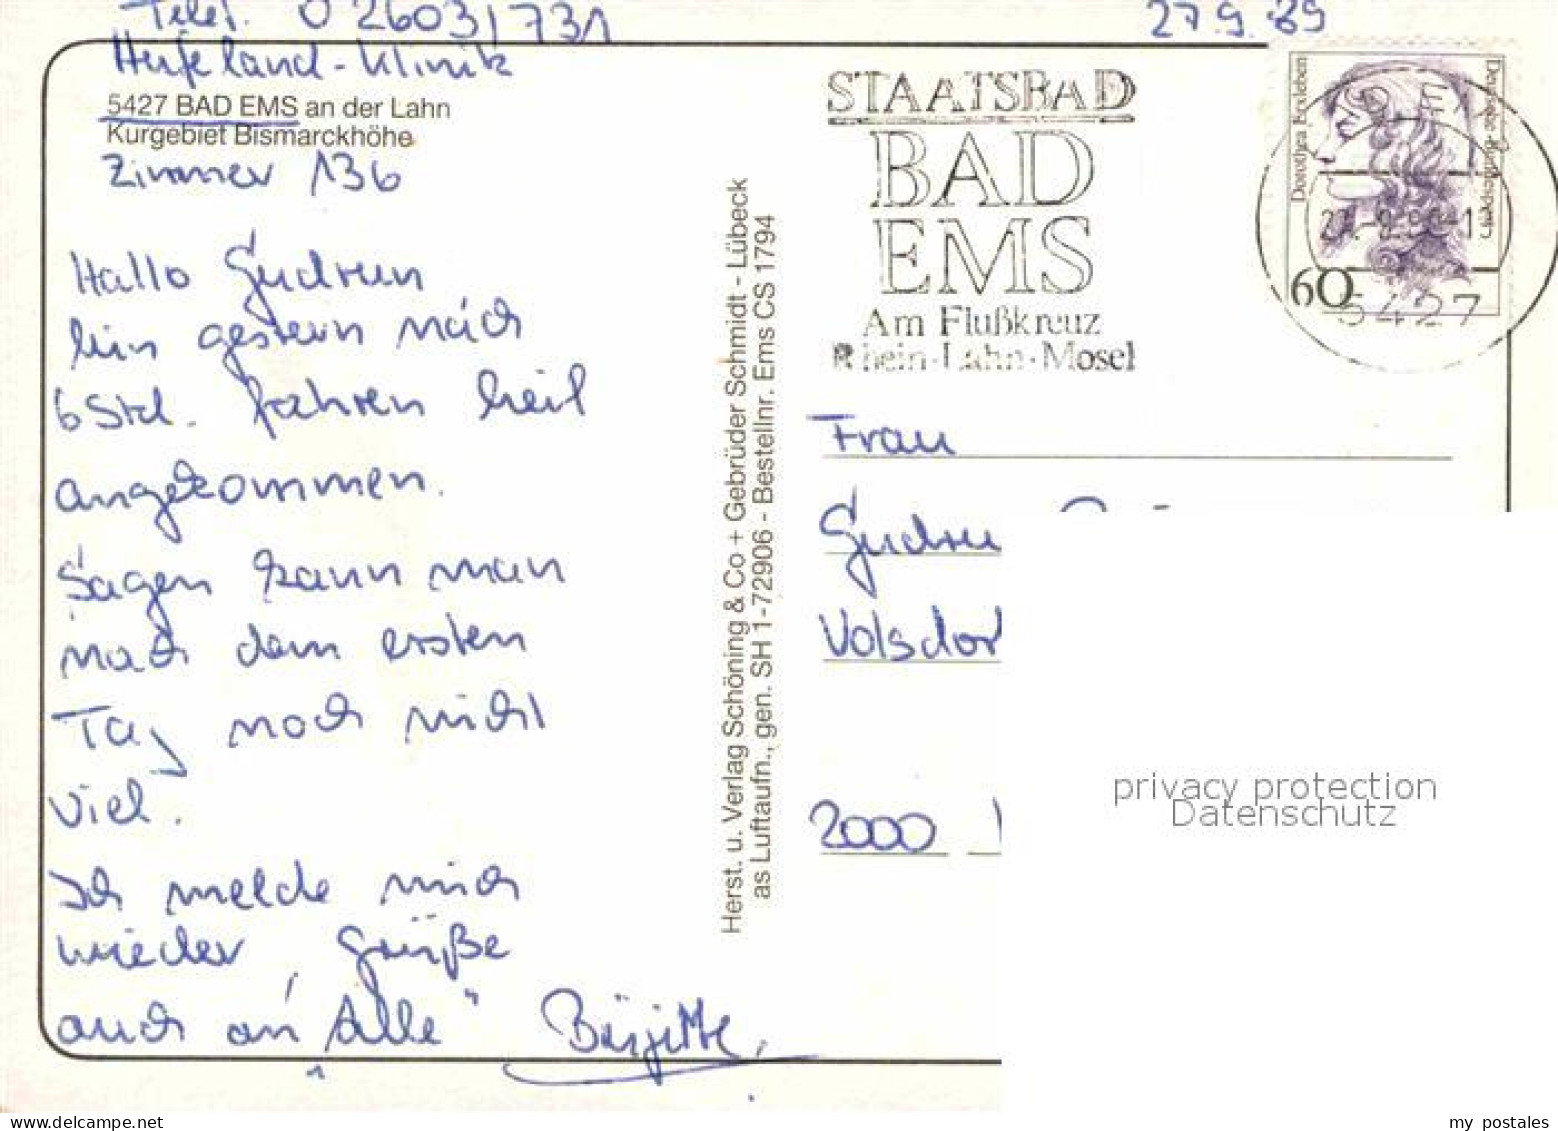 Telef. 02603/731
27.9.89
Hufeland-Klinik
5427 BAD EMS an der Lahn
Kurgebiet Bismarckhöhe
Zimmer 136
Hallo Gudrun
bin gestern nach
6 Std. fahren heil
angekommen.
Sagen kann man
nach dem ersten
Tag noch nicht
viel.
Ich melde mich
wieder, Grüße
auch an „Alle“
Birgitte.
Herst. u. Verlag Schöning & Co + Gebrüder Schmidt - Lübeck
as Luftaufn., gen. SH 1-72906 - Bestellnr. Ems CS 1794
STAATSBAD
BAD
EMS
Am Flußkreuz
Rhein-Lahn-Mosel
Dorothea Erxleben
Deutsche Bundespost
60
5427
Frau
Gudrun
Volsdor
2000
privacy protection
Datenschutz
my postales